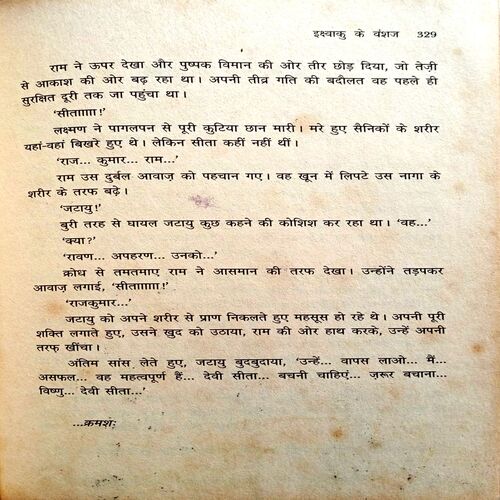 इक्ष्वाकु के वंशज 329
राम ने ऊपर देखा और पुष्पक विमान की ओर तीर छोड़ दिया, जो तेज़ी
से आकाश की ओर बढ़ रहा था। अपनी तीव्र गति की बदौलत वह पहले ही
सुरक्षित दूरी तक जा पहुंचा था।
‘सीताााा!’
लक्ष्मण ने पागलपन से पूरी कुटिया छान मारी। मरे हुए सैनिकों के शरीर
यहां-वहां बिखरे हुए थे। लेकिन सीता कहीं नहीं थीं।
‘राज... कुमार... राम...’
राम उस दुर्बल आवाज़ को पहचान गए। वह खून में लिपटे उस नागा के
शरीर के तरफ बढ़े।
‘जटायु!’
बुरी तरह से घायल जटायु कुछ कहने की कोशिश कर रहा था। ‘वह...’
‘क्या?’
‘रावण... अपहरण... उनको...’
क्रोध से तमतमाए राम ने आसमान की तरफ देखा। उन्होंने तड़पकर
आवाज़ लगाई, ‘सीताााा!’
‘राजकुमार...’
जटायु को अपने शरीर से प्राण निकलते हुए महसूस हो रहे थे। अपनी पूरी
शक्ति लगाते हुए, उसने खुद को उठाया, राम की ओर हाथ करके, उन्हें अपनी
तरफ़ खींचा।
अंतिम सांस लेते हुए, जटायु बुदबुदाया, ‘उन्हें... वापस लाओ... मैं...
असफल... वह महत्वपूर्ण हैं... देवी सीता... बचनी चाहिएं... ज़रूर बचाना...
विष्णु... देवी सीता...’
...क्रमशः